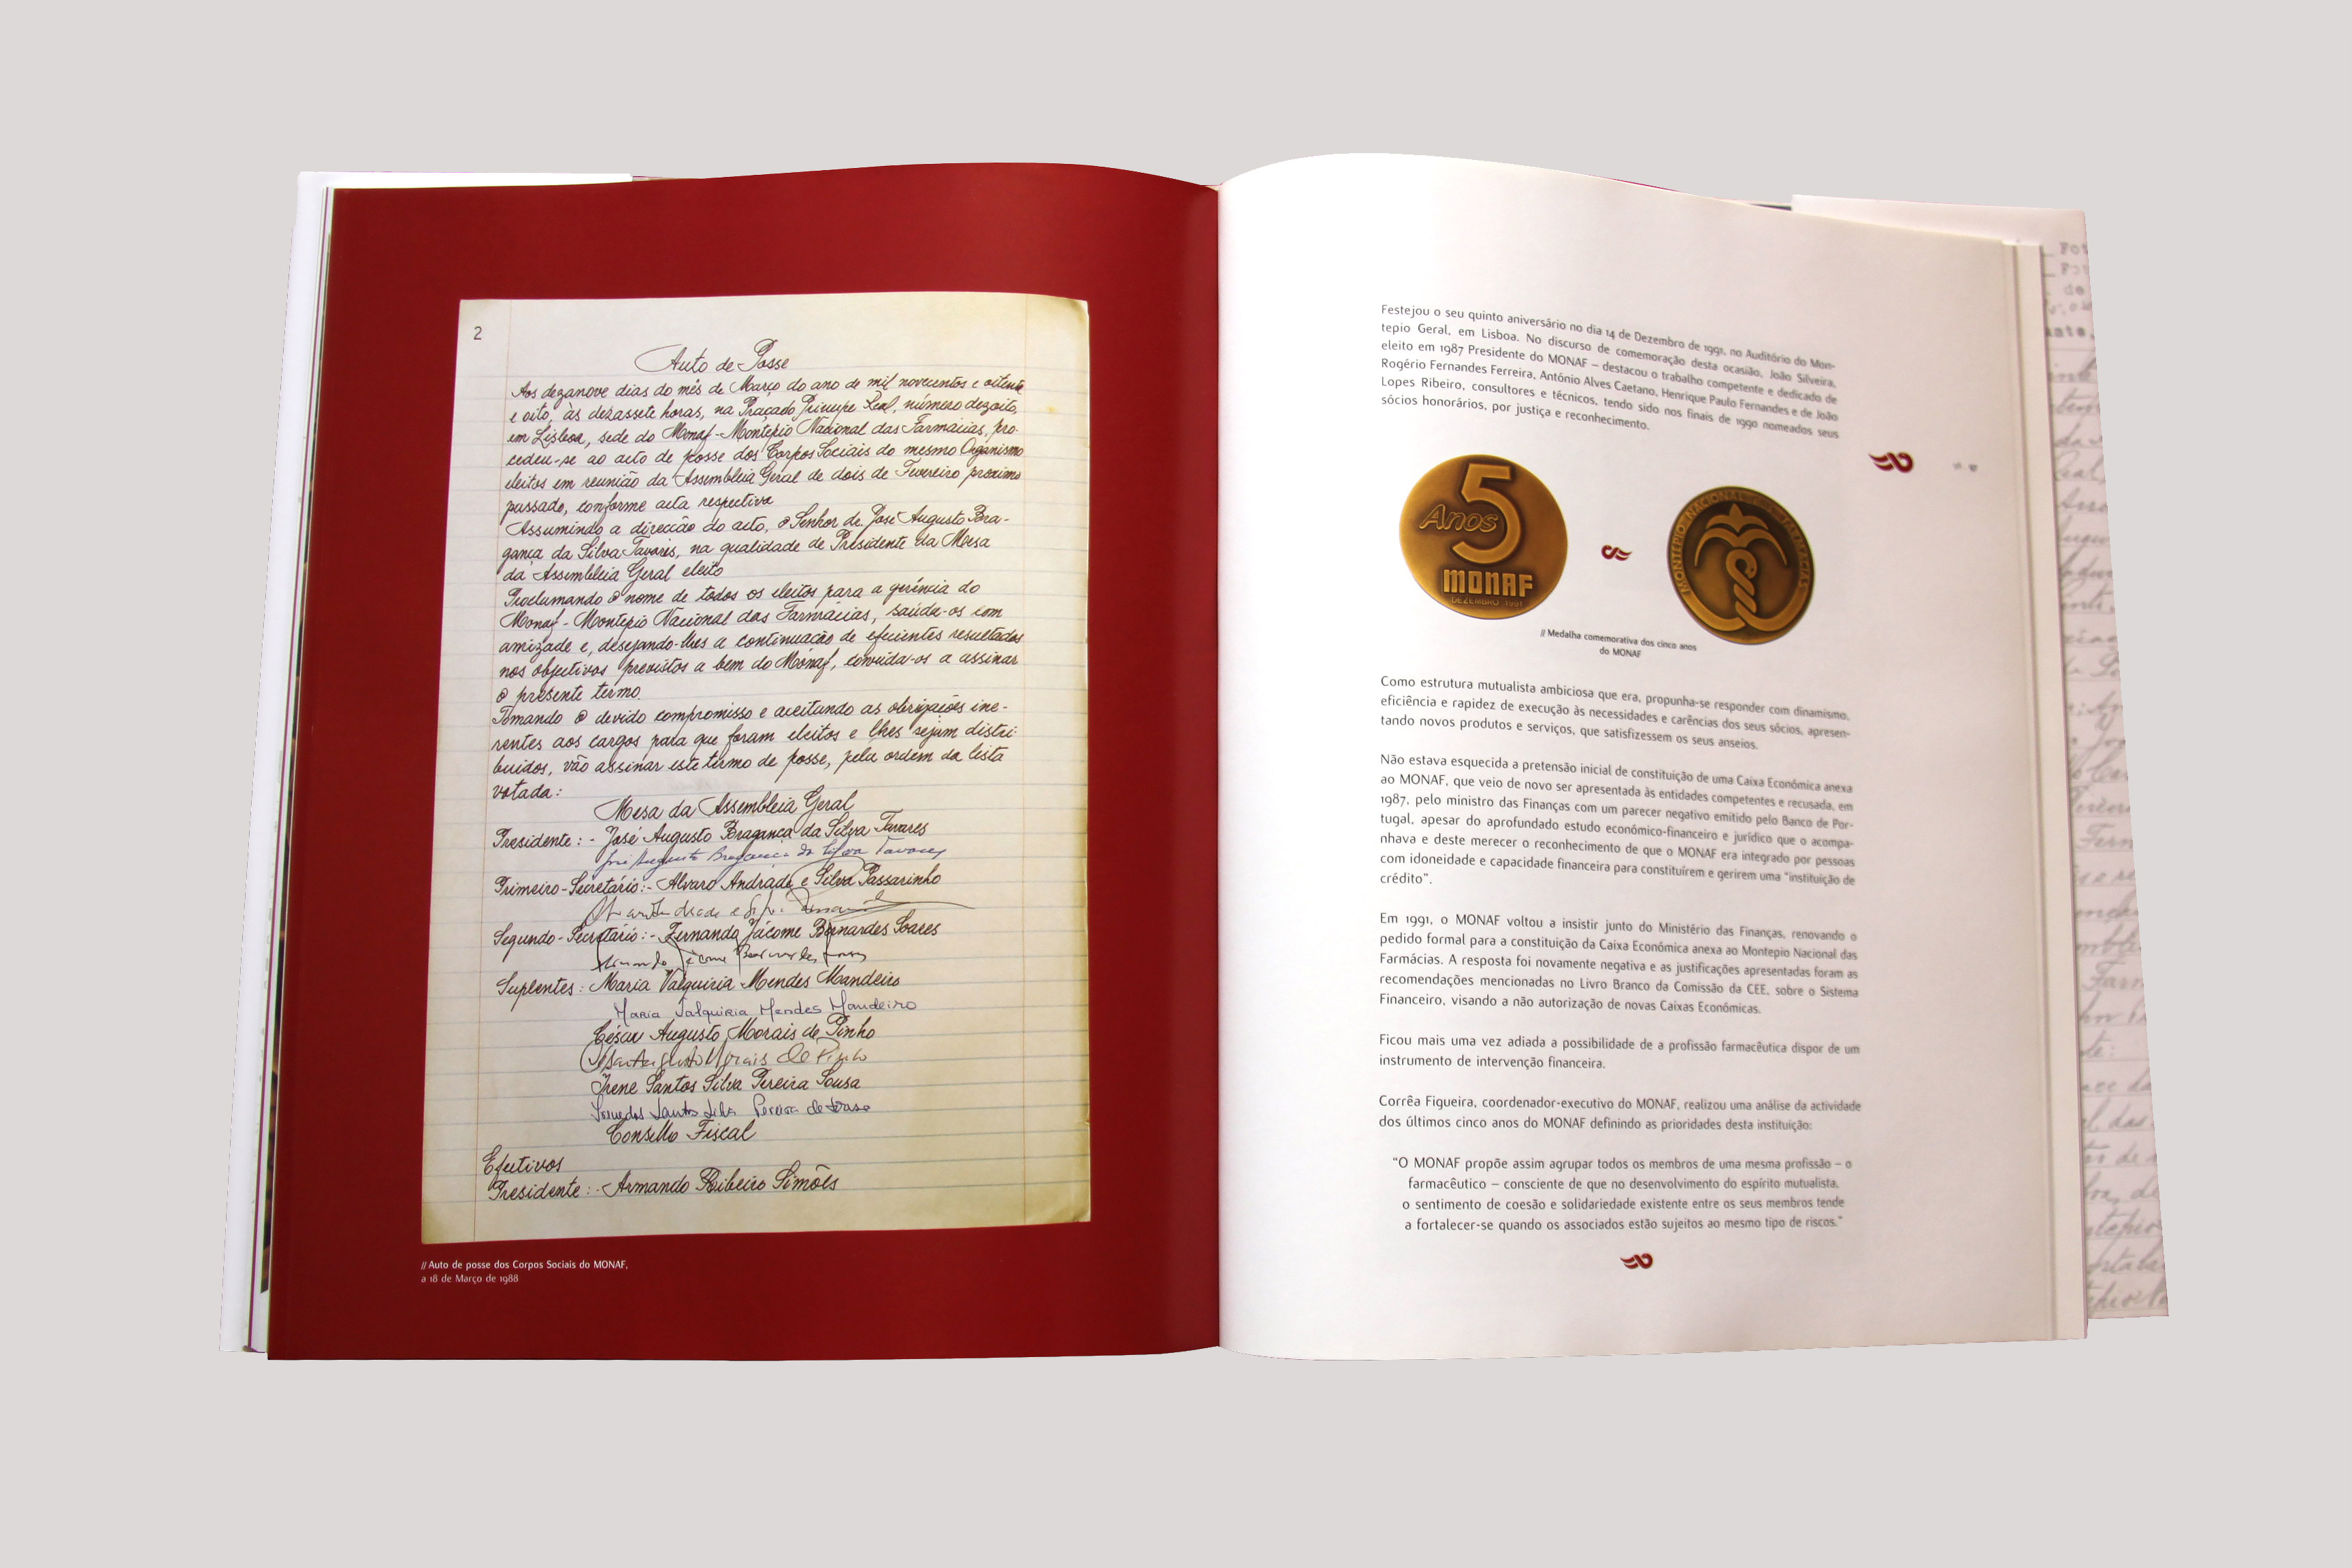 2
Auto de Posse
Aos dezanove dias do mês de Março do ano de mil novecentos e oitenta
e oito, às dezassete horas, na Praça do Príncipe Real, número dezoito,
em Lisboa, sede do Monaf-Montepio Nacional das Farmácias, pro-
cedeu-se ao acto de posse dos Corpos Sociais do mesmo Organismo
eleitos em reunião da Assembleia Geral de dois de Fevereiro próximo
passado, conforme acta respectiva
Assumindo a direcção do acto, o Senhor dr. José Augusto Bra-
gança da Silva Tavares, na qualidade de Presidente da Mesa
da Assembleia Geral eleito
Proclamando o nome de todos os eleitos para a gerência do
Monaf-Montepio Nacional das Farmácias, saúda-os com
amizade e, desejando-lhes a continuação de eficientes resultados
nos objectivos previstos a bem do Mónaf, convida-os a assinar
o presente termo.
Tomando o devido compromisso e aceitando as obrigações ine-
rentes aos cargos para que foram eleitos e lhes sejam distri-
buidos, vão assinar este termo de posse, pela ordem da lista
votada:
Mesa da Assembleia Geral
Presidente:- José Augusto Bragança da Silva Tavares
José Augusto Bragança da Silva Tavares
Primeiro-Secretário:- Alvaro Andrade e Silva Passarinho
Segundo-Secretário:- Fernando Jácome Bernardes Soares
Fernando Jácome Bernardes Soares
Suplentes: Maria Valquiria Mendes Mandeiro
Maria Valquiria Mendes Mandeiro
César Augusto Morais de Pinho
César Augusto Morais de Pinho
Irene Santos Silva Pereira Sousa
Irene dos Santos Silva Pereira de Sousa
Conselho Fiscal
Efectivos
Presidente:- Armando Ribeiro Simões
// Auto de posse dos Corpos Sociais do MONAF,
a 18 de Março de 1988
Festejou o seu quinto aniversário no dia 14 de Dezembro de 1991, no Auditório do Mon-
tepio Geral, em Lisboa. No discurso de comemoração desta ocasião, João Silveira,
eleito em 1987 Presidente do MONAF – destacou o trabalho competente e dedicado de
Rogério Fernandes Ferreira, António Alves Caetano, Henrique Paulo Fernandes e de João
Lopes Ribeiro, consultores e técnicos, tendo sido nos finais de 1990 nomeados seus
sócios honorários, por justiça e reconhecimento.
5
Anos
MONAF
DEZEMBRO 1991
MONTEPIO NACIONAL DAS FARMÁCIAS
// Medalha comemorativa dos cinco anos
do MONAF
Como estrutura mutualista ambiciosa que era, propunha-se responder com dinamismo,
eficiência e rapidez de execução às necessidades e carências dos seus sócios, apresen-
tando novos produtos e serviços, que satisfizessem os seus anseios.
Não estava esquecida a pretensão inicial de constituição de uma Caixa Económica anexa
ao MONAF, que veio de novo ser apresentada às entidades competentes e recusada, em
1987, pelo ministro das Finanças com um parecer negativo emitido pelo Banco de Por-
tugal, apesar do aprofundado estudo económico-financeiro e jurídico que o acompa-
nhava e deste merecer o reconhecimento de que o MONAF era integrado por pessoas
com idoneidade e capacidade financeira para constituírem e gerirem uma “instituição de
crédito”.
Em 1991, o MONAF voltou a insistir junto do Ministério das Finanças, renovando o
pedido formal para a constituição da Caixa Económica anexa ao Montepio Nacional das
Farmácias. A resposta foi novamente negativa e as justificações apresentadas foram as
recomendações mencionadas no Livro Branco da Comissão da CEE, sobre o Sistema
Financeiro, visando a não autorização de novas Caixas Económicas.
Ficou mais uma vez adiada a possibilidade de a profissão farmacêutica dispor de um
instrumento de intervenção financeira.
Corrêa Figueira, coordenador-executivo do MONAF, realizou uma análise da actividade
dos últimos cinco anos do MONAF definindo as prioridades desta instituição:
“O MONAF propõe assim agrupar todos os membros de uma mesma profissão – o
farmacêutico – consciente de que no desenvolvimento do espírito mutualista,
o sentimento de coesão e solidariedade existente entre os seus membros tende
a fortalecer-se quando os associados estão sujeitos ao mesmo tipo de riscos.”